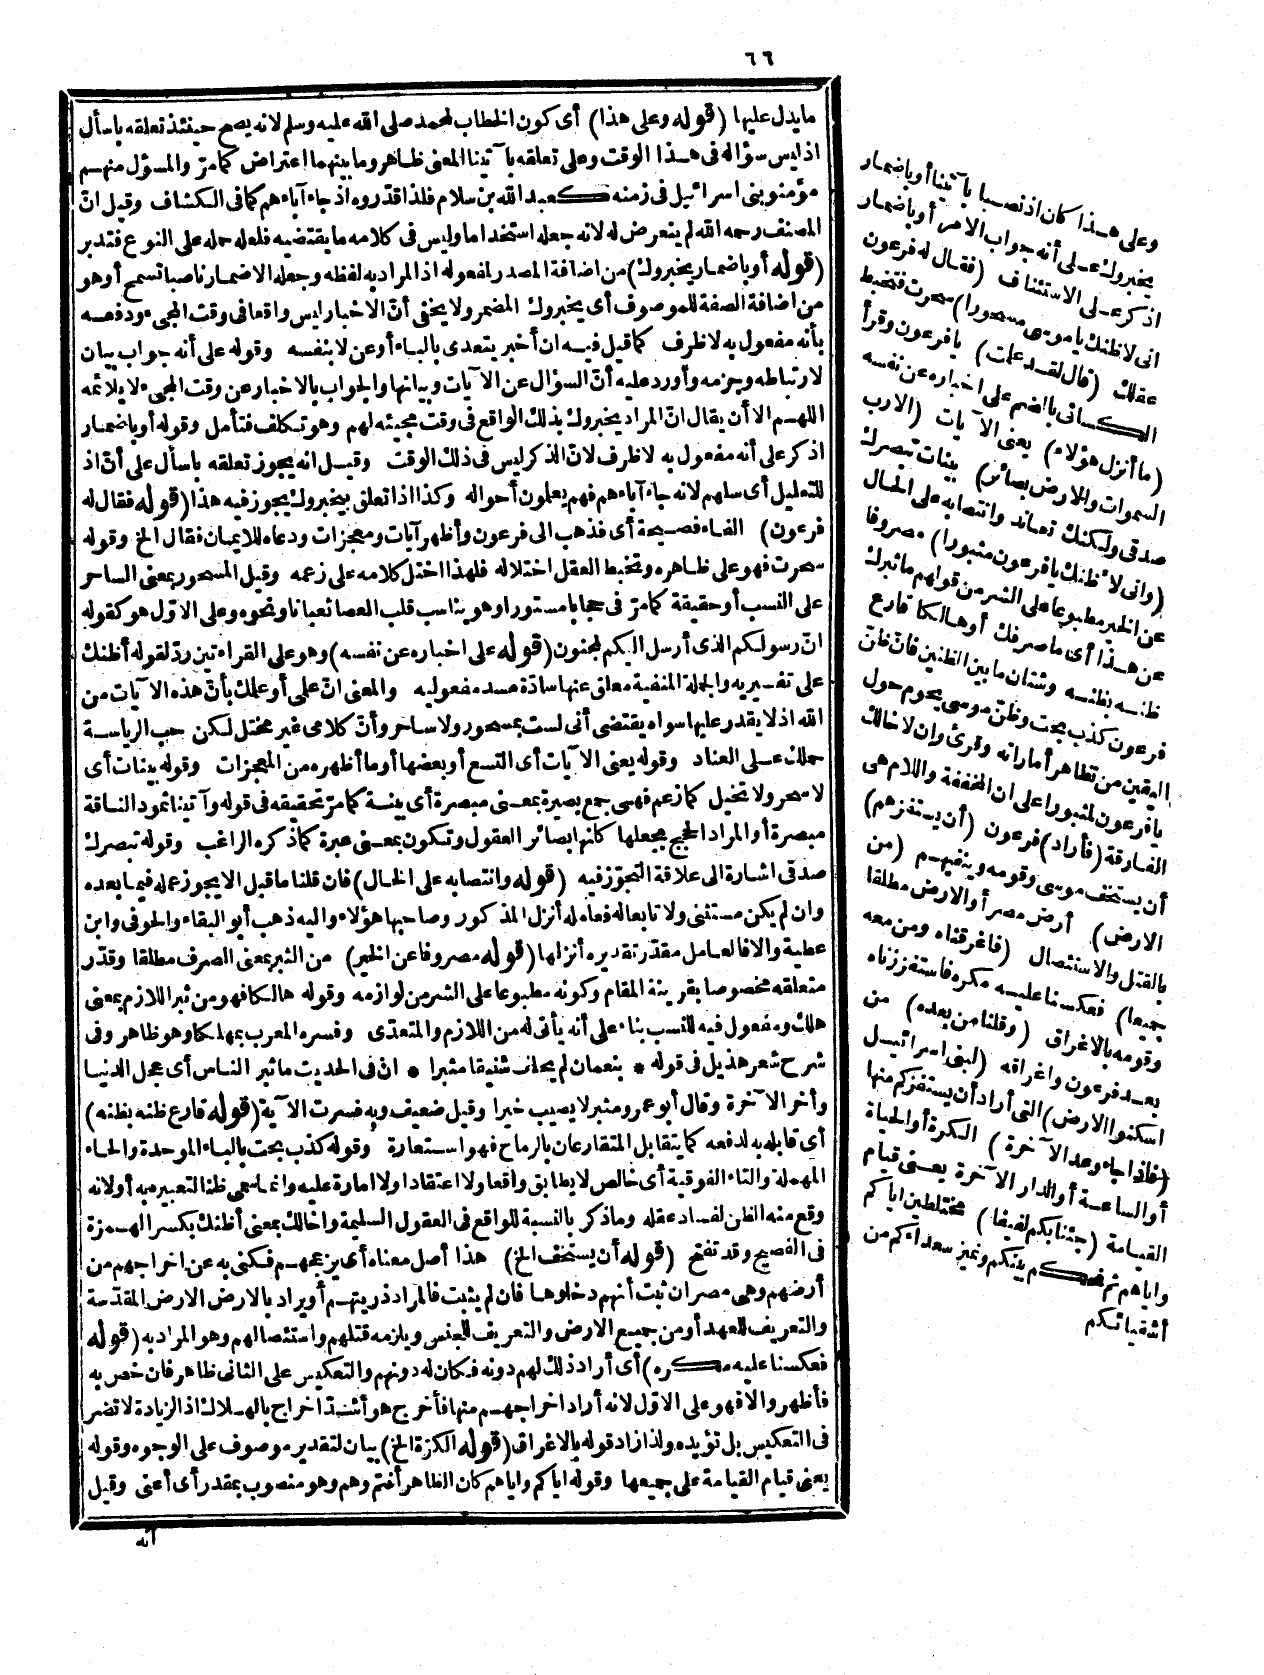 ٦٦
مايدل عليها (قوله وعلى هذا) أى كون الخطاب لمحمد صلى الله عليه وسلم لانه يصح حينئذ تعلقه باسأل
اذ ليس سؤاله فى هذا الوقت وعلى تعلقه بآتينا المعنى ظاهر وما بينهما اعتراض كمامرّ والمسؤل منهم
مؤمنو بنى اسرائيل فى زمنه كعبد الله بن سلام فلذا قدّروه اذ جاء آباءهم كمافى الكشاف وقيل انّ
المصنف رحمه الله لم يتعرض له لانه جعله استخداما وليس فى كلامه ما يقتضيه فلعله حمله على النوع فتدبر
(قوله أو باضمار يخبروك) من اضافة المصدر لمفعوله اذ المراد به لفظه وجعله الاضمار ناصبا تسمح أوهو
من اضافة الصفة للموصوف أى يخبروك المضمر ولا يخفى أنّ الاخبار ليس واقعا فى وقت المجىء ودفعه
بأنه مفعول به لا ظرف كماقيل فيه ان أخبر يتعدى بالباء أو عن لا بنفسه وقوله على أنه جواب بيان
لارتباطه وجزمه وأورد عليه أنّ السؤال عن الآيات وبيانها والجواب بالاخبار عن وقت المجىء لا يلائمه
اللهم الا أن يقال انّ المراد يخبروك بذلك الواقع فى وقت مجيئه لهم وهو تكلف فتأمل وقوله أو باضمار
اذكر على أنه مفعول به لا ظرف لانّ الذكر ليس فى ذلك الوقت وقيل انه يجوز تعلقه باسأل على أنّ اذ
للتعليل أى سلهم لانه جاء آباءهم فهم يعلمون أحواله وكذا اذا تعلق بيخبروك يجوز فيه هذا (قوله فقال له
فرعون) الفاء فصيحة أى فذهب الى فرعون وأظهر آيات ومعجزات ودعاه للايمان فقال الخ وقوله
سحرت فهو على ظاهره وتخبط العقل اختلاله فلهذا اختل كلامه على زعمه وقيل المسحور بمعنى الساحر
على النسب أو حقيقة كمامرّ فى حجابا مستورا وهو يناسب قلب العصا ثعبانا ونحوه وعلى الاوّل هو كقوله
انّ رسولكم الذى أرسل اليكم لمجنون (قوله على اخباره عن نفسه) وهو على القراءتين ردّ لقوله أظنك
على تفسيريه والجملة المنفية معلق عنها سادّة مسدّ مفعوليه والمعنى انّ علمى أو علمك بأنّ هذه الآيات من
الله اذ لا يقدر عليها سواه يقتضى أنى لست بمسحور ولا ساحر وأنّ كلامى غير مختل لكن حب الرياسة
حملك على العناد وقوله يعنى الآيات أى التسع أو بعضها أو ما أظهره من المعجزات وقوله بينات أى
لا سحر ولا تخيل كمازعم فهى جمع بصيرة بمعنى مبصرة أى بينة كمامرّ تحقيقه فى قوله وآتينا ثمود الناقة
مبصرة أو المراد الحجج بجعلها كأنها بصائر العقول وتكون بمعنى عبرة كماذكره الراغب وقوله تبصرك
صدقى اشارة الى علاقة التجوّز فيه (قوله وانتصابه على الحال) فان قلنا ما قبل الا يجوز عمله فيما بعده
وان لم يكن مستثنى ولا تابعا له فعامله أنزل المذكور وصاحبها هؤلاء واليه ذهب أبو البقاء والحوفى وابن
عطية والا فالعامل مقدّر تقديره أنزلها (قوله مصروفا عن الخير) من الثبر بمعنى الصرف مطلقا وقدّر
متعلقه مخصوصا بقرينة المقام وكونه مطبوعا على الشر من لوازمه وقوله هالكا فهو من ثبر اللازم بمعنى
هلك ومفعول فيه للنسب بناء على أنه يأتى له من اللازم والمتعدّى وفسره المعرب بمهلكا وهو ظاهر وفى
شرح شعر هذيل فى قوله * بنعمان لم يخلق شنيقا مثبرا * ان فى الحديث ما ثبر الناس أى عجل الدنيا
وأخر الآخرة وقال أبو عمرو مثبر لا يصيب خيرا وقيل ضعيف وبه فسرت الآية (قوله قارع ظنه بظنه)
أى قابله به لدفعه كما يتقابل المتقارعان بالرماح فهو استعارة وقوله كذب بحت بالباء الموحدة والحاء
المهملة والتاء الفوقية أى خالص لا يطابق واقعا ولا اعتقادا ولا امارة عليه وانما سمى ظنا لتعبيره به أو لانه
وقع منه الظن لفساد عقله وماذكر بالنسبة للواقع فى العقول السليمة واخالك بمعنى أظنك بكسر الهمزة
فى الفصيح وقد تفتح (قوله أن يستخف الخ) هذا أصل معناه أى يزعجهم فكنى به عن اخراجهم من
أرضهم وهى مصر ان ثبت أنهم دخلوها فان لم يثبت فالمراد ذريتهم أو يراد بالارض الارض المقدّسة
والتعريف للعهد أو من جميع الارض والتعريف للجنس ويلزمه قتلهم واستئصالهم وهو المراد به (قوله
فعكسنا عليه مكره) أى أراد ذلك لهم دونه فكان له دونهم والتعكيس على الثانى ظاهر فان خص به
فأظهر والا فهو على الاوّل لانه أراد اخراجهم منها فأخرج هو أشدّ اخراج بالهلاك اذ الزيادة لا تضر
فى التعكيس بل تؤيده ولذا زاد قوله بالاغراق (قوله الكرّة الخ) بيان لتقدير موصوف على الوجوه وقوله
يعنى قيام القيامة على جميعها وقوله اياكم واياهم كان الظاهر أنتم وهم وهو منصوب بمقدر أى أعنى وقيل
انه
وعلى هذا كان اذ نصبا بآتينا أو باضمار
يخبروك على أنه جواب الامر أو باضمار
اذكر على الاستئناف (فقال له فرعون
انى لاظنك يا موسى مسحورا) سحرت فتخبط
عقلك (قال لقد علمت) يا فرعون وقرأ
الكسائى بالضم على اخباره عن نفسه
(ما أنزل هؤلاء) يعنى الآيات (الا رب
السموات والارض بصائر) بينات تبصرك
صدقى ولكنك تعاند وانتصابه على الحال
(وانى لأظنك يا فرعون مثبورا) مصروفا
عن الخير مطبوعا على الشر من قولهم ما ثبرك
عن هذا أى ما صرفك أو هالكا قارع
ظنه بظنه وشتان ما بين الظنين فان ظنّ
فرعون كذب بحت وظنّ موسى يحوم حول
اليقين من تظاهر أماراته وقرئ وان لاخالك
يا فرعون لمثبورا على ان المخففة واللام هى
الفارقة (فأراد) فرعون (أن يستفزهم)
أن يستخف موسى وقومه وينفيهم (من
الارض) أرض مصر أو الارض مطلقا
بالقتل والاستئصال (فاغرقناه ومن معه
جميعا) فعكسنا عليه مكره فاستفززناه
وقومه بالاغراق (وقلنا من بعده) من
بعد فرعون واغراقه (لبنى اسرائيل
اسكنوا الارض) التى أراد أن يستفزكم منها
(فاذا جاء وعد الآخرة) الكرة أو الحياة
أو الساعة أو الدار الآخرة يعنى قيام
القيامة (جئنا بكم لفيفا) مختلطين اياكم
واياهم ثم نحكم بينكم ونميز سعداءكم من
أشقيائكم